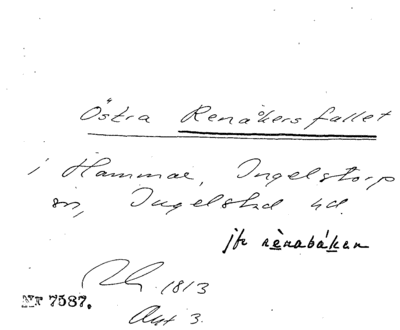 Östra Renåkersfallet
i Hammar, Ingelstorp
sn, Ingelstad hd.
jfr rènabákan
1813
Nr 7587.
Akt 3.